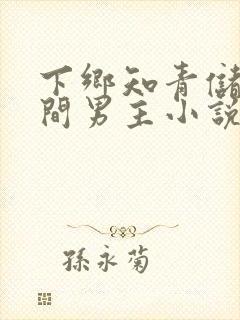 下鄉知青儲
間男主小說
孫永菊